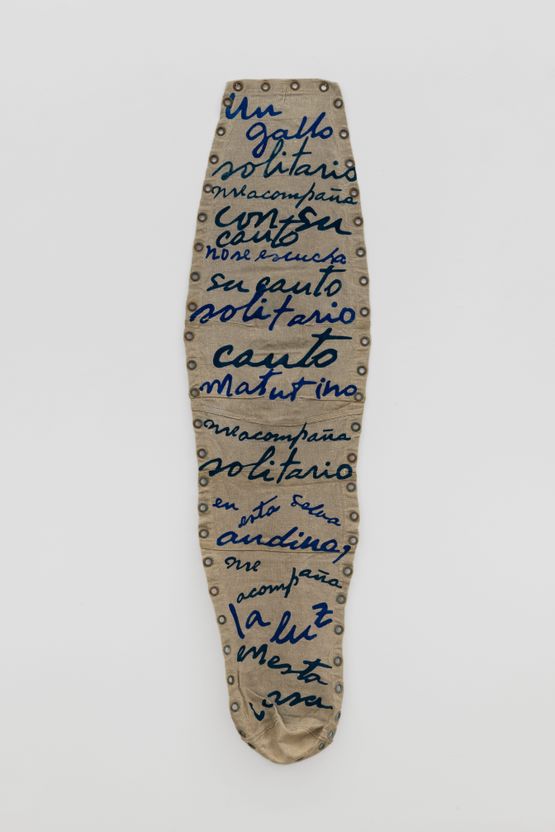 Un
gallo
solitario
me acompaña
con su
canto
no se escucha
su canto
solitario
canto
matutino
me acompaña
solitario
en esta selva
andina,
me
acompaña
la luz
en esta
casa